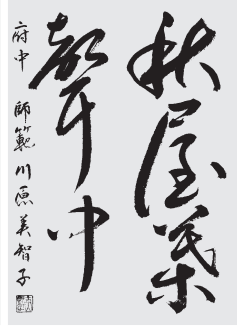 秋屋葉
聲中
府中 師範 川原美智子